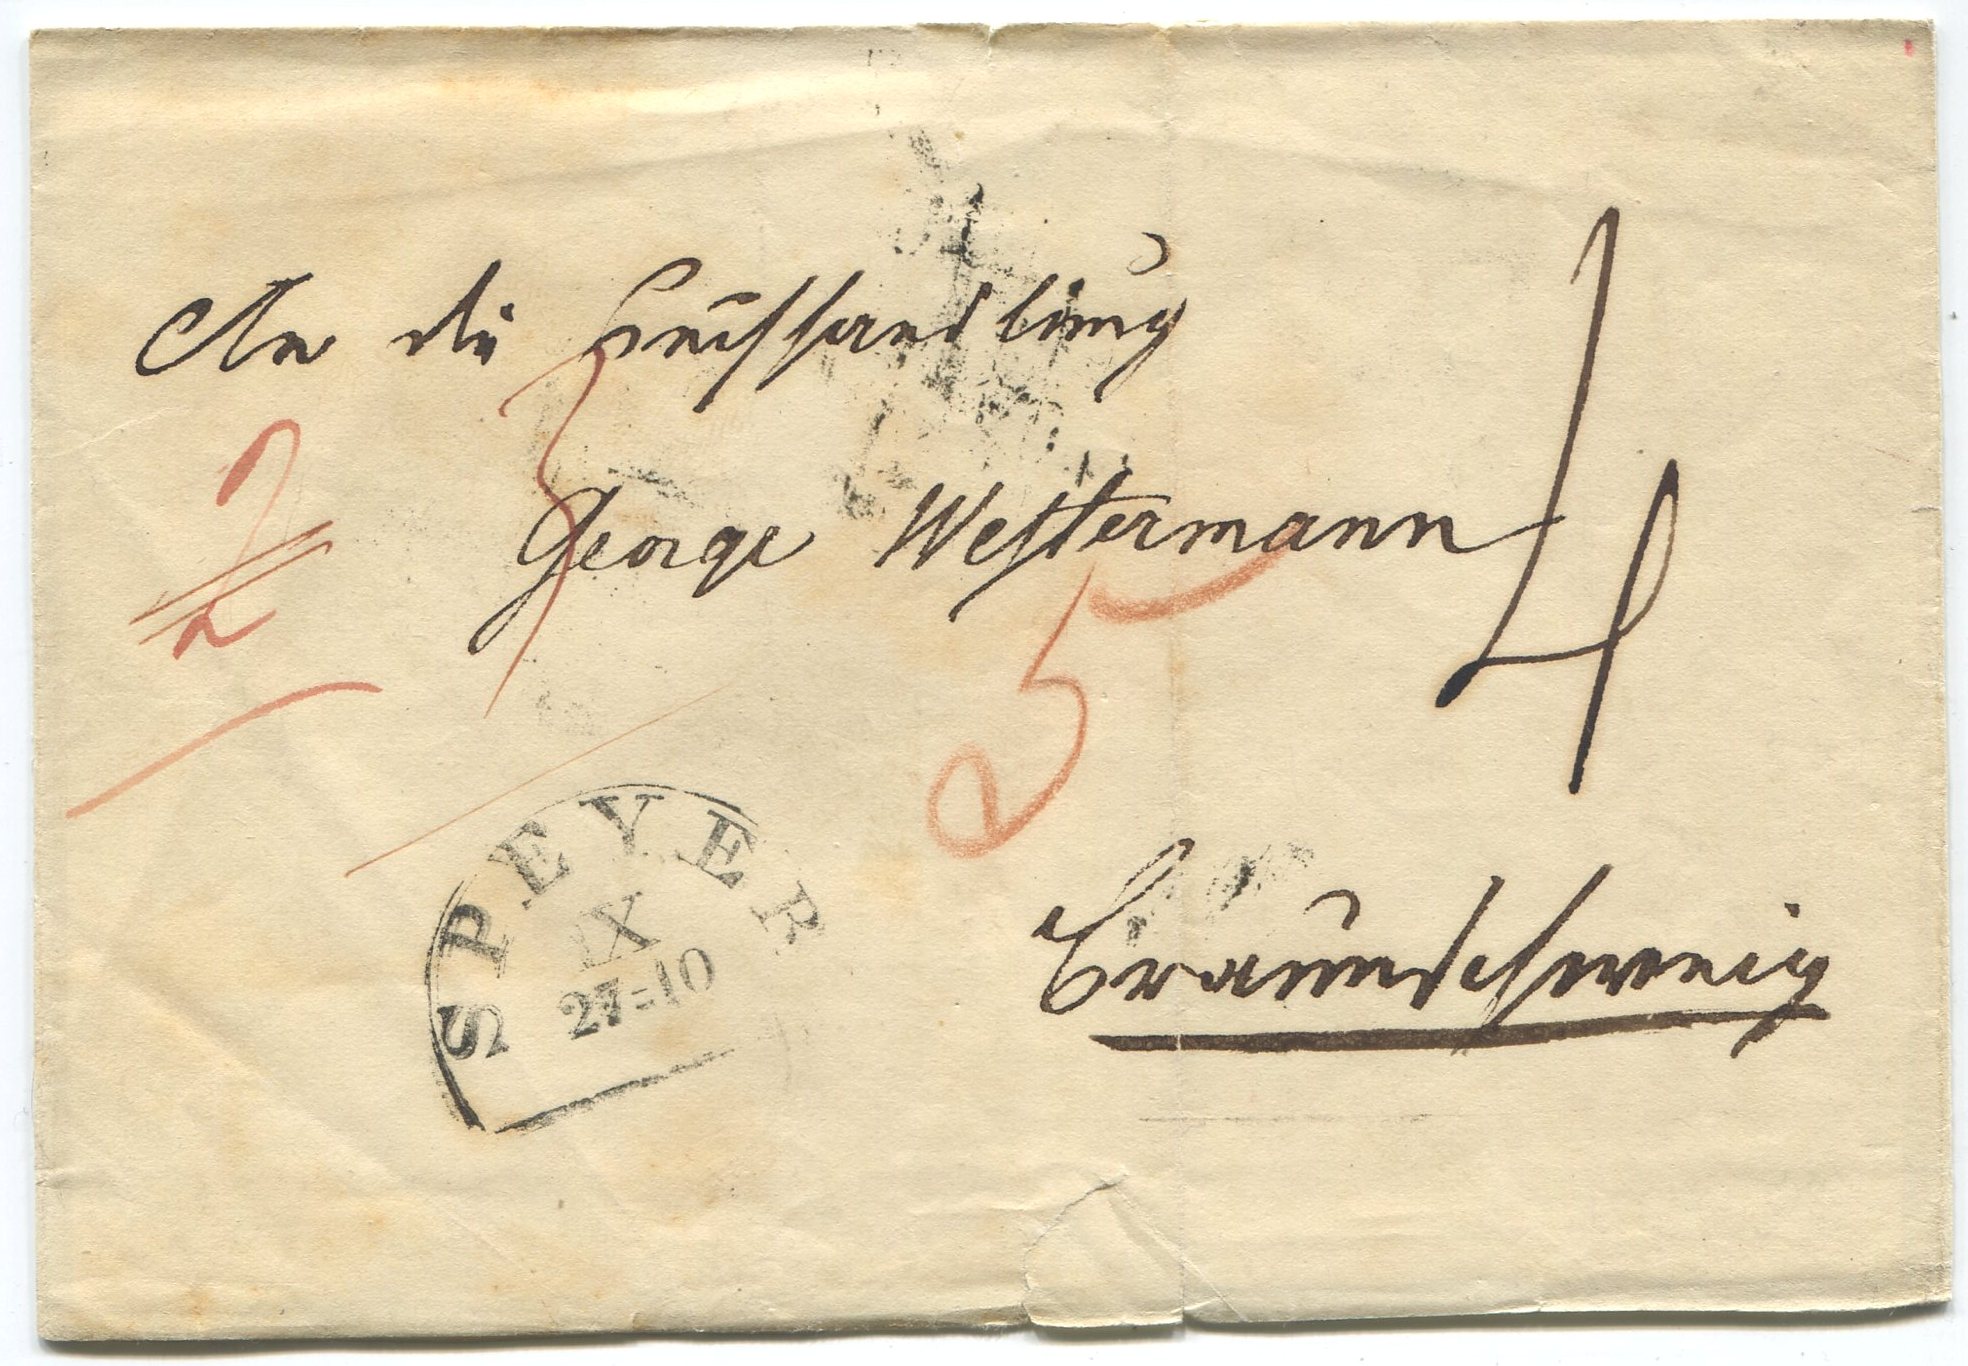 An die Buchhandlung
2
3
George Westermann
4
5
SPEYER
IX
27=10
Braunschweig